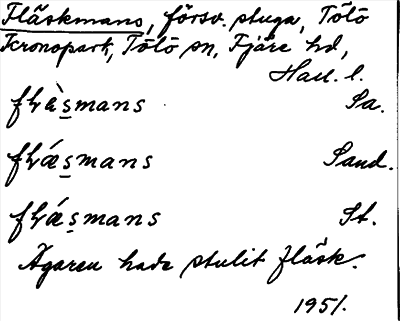 Fläskmans, försv. stuga, Tölö
Kronopark, Tölö sn, Fjäre hd,
Hall. l.
flæ̀s̲mans Sa.
flǽs̲mans Sand.
flǽs̲mans St.
Ägaren hade stulit fläsk.
1951.